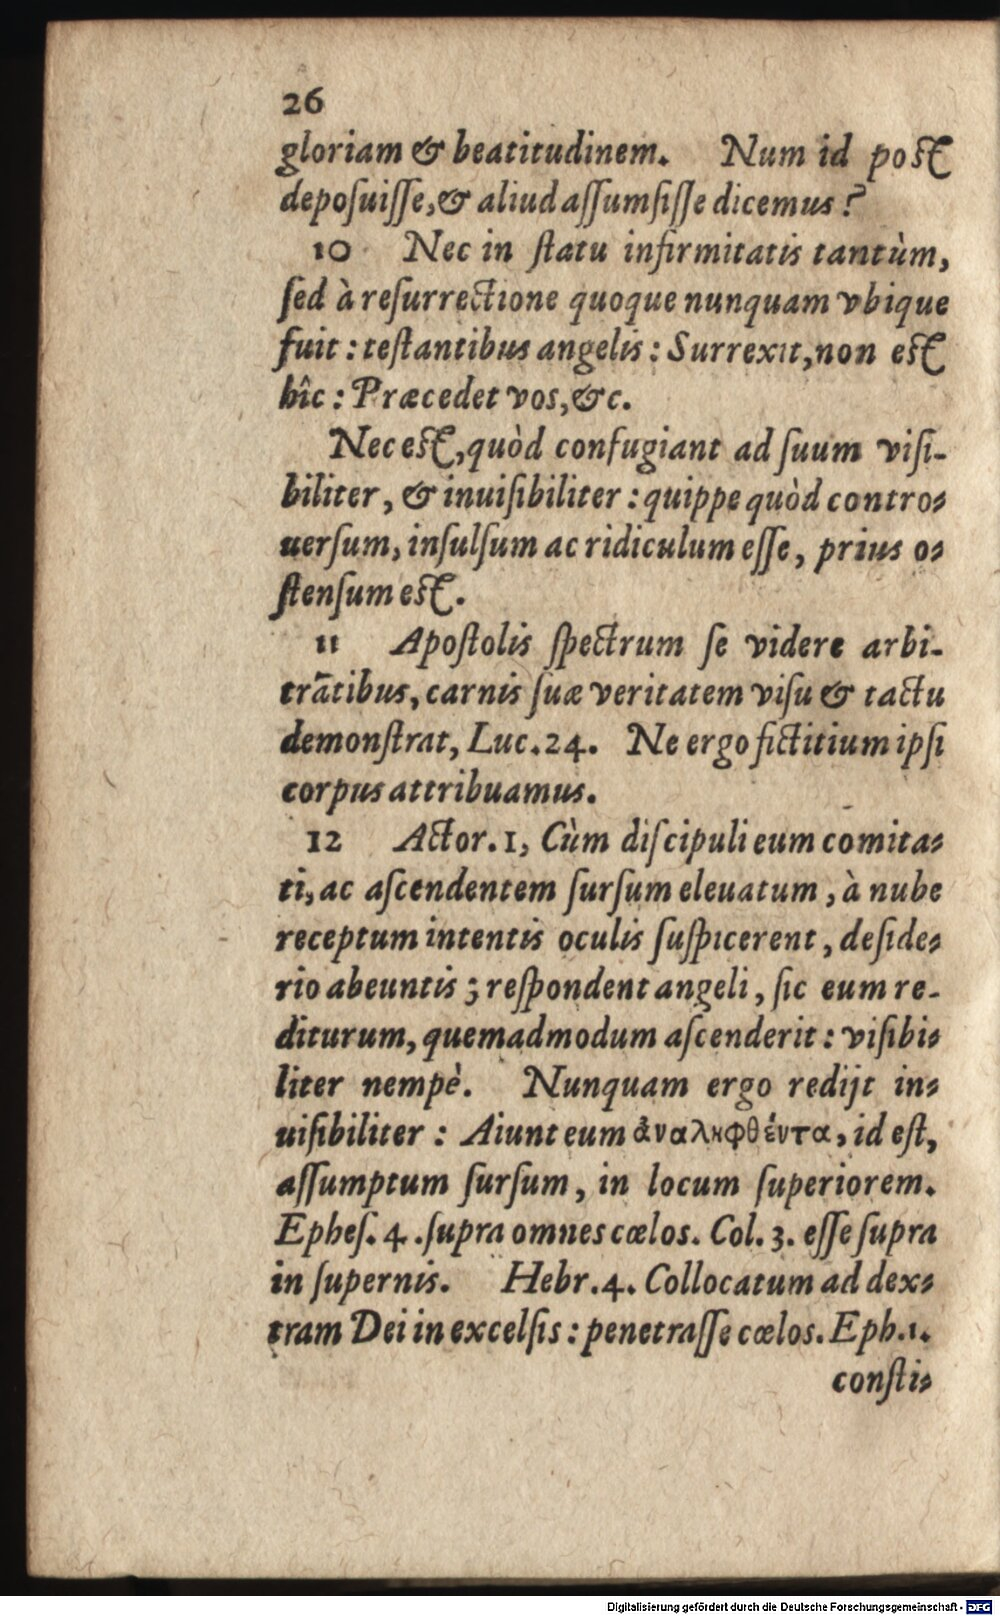 26
gloriam & beatitudinem. Num id post
deposuiſſe, & aliud aſſumſiſſe dicemus?
10 Nec in ſtatu infirmitatis tantùm,
ſed à reſurrectione quoque nunquam vbique
fuit: teſtantibus angelis: Surrexit, non est
hîc: Præcedet vos, &c.
Nec est, quòd confugiant ad ſuum viſi-
biliter, & inuiſibiliter: quippe quòd contro-
uerſum, inſulſum ac ridiculum eſſe, prius o-
ſtenſum est.
11 Apoſtolis ſpectrum ſe videre arbi-
trãtibus, carnis ſuæ veritatem viſu & tactu
demonſtrat, Luc. 24. Ne ergo fictitium ipſi
corpus attribuamus.
12 Actor. 1, Cùm diſcipuli eum comita-
ti, ac aſcendentem ſurſum eleuatum, à nube
receptum intentis oculis ſuſpicerent, deſide-
rio abeuntis; reſpondent angeli, ſic eum re-
diturum, quemadmodum aſcenderit: viſibi-
liter nempè. Nunquam ergo redijt in-
uiſibiliter: Aiunt eum ἀναληφθέντα, id eſt,
aſſumptum ſurſum, in locum ſuperiorem.
Epheſ. 4. ſupra omnes cœlos. Col. 3. eſſe ſupra
in ſupernis. Hebr. 4. Collocatum ad dex-
tram Dei in excelſis: penetraſſe cœlos. Eph. 1.
conſti-
Digitalisierung gefördert durch die Deutsche Forschungsgemeinschaft - DFG